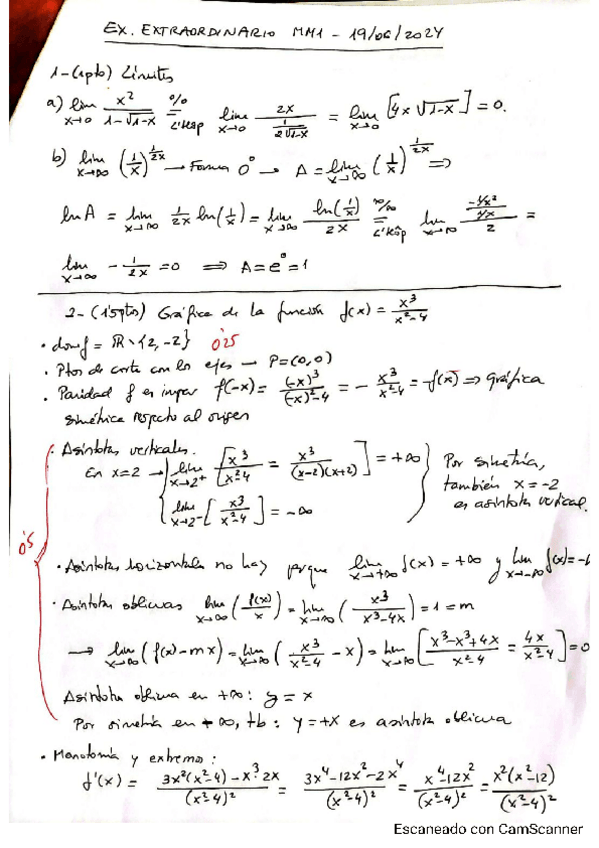 EX. EXTRAORDINARIO MM1 - 19/06/2024
1-(1pto) Límites
a) lim x→0 x²/(1-√(1-x)) %= L'Hôp lim x→0 2x/(1/(2√(1-x))) = lim x→0 [4x √(1-x)] = 0.
b) lim x→∞ (1/x)^(1/2x) → Forma 0⁰ → A = lim x→∞ (1/x)^(1/2x) ⇒
ln A = lim x→∞ 1/2x ln(1/x) = lim x→∞ ln(1/x)/2x ∞/∞ = L'Hôp lim x→∞ (-1/x²/1/x)/2 =
lim x→∞ -1/2x = 0 ⇒ A = e⁰ = 1
2-(1'5ptos) Gráfica de la función f(x) = x³/(x²-4)
• dom f = ℝ \ {2, -2} 0'25
• Ptos de corte con los ejes → P=(0,0)
• Paridad f es impar f(-x) = (-x)³/((-x)²-4) = - x³/(x²-4) = -f(x) ⇒ Gráfica
simétrica respecto al origen
• Asíntotas verticales.
En x=2 → lim x→2⁺ [x³/(x²-4) = x³/((x-2)(x+2))] = +∞
lim x→2⁻ [x³/(x²-4)] = -∞
Por simetría,
también x=-2
es asíntota vertical.
0'5
• Asíntotas horizontales no hay porque lim x→+∞ f(x) = +∞ y lim x→-∞ f(x) = -
• Asíntotas oblicuas lim x→∞ (f(x)/x) = lim x→∞ (x³/(x³-4x)) = 1 = m
→ lim x→∞ (f(x)-mx) = lim x→∞ (x³/(x²-4) - x) = lim x→∞ [(x³-x³+4x)/(x²-4) = 4x/(x²-4)] = 0
Asíntota oblicua en +∞: y = x
Por simetría en -∞, tb: y = +x es asíntota oblicua
• Monotonía y extremos:
f'(x) = (3x²(x²-4) - x³·2x)/(x²-4)² = (3x⁴-12x²-2x⁴)/(x²-4)² = (x⁴-12x²)/(x²-4)² = x²(x²-12)/(x²-4)²
Escaneado con CamScanner